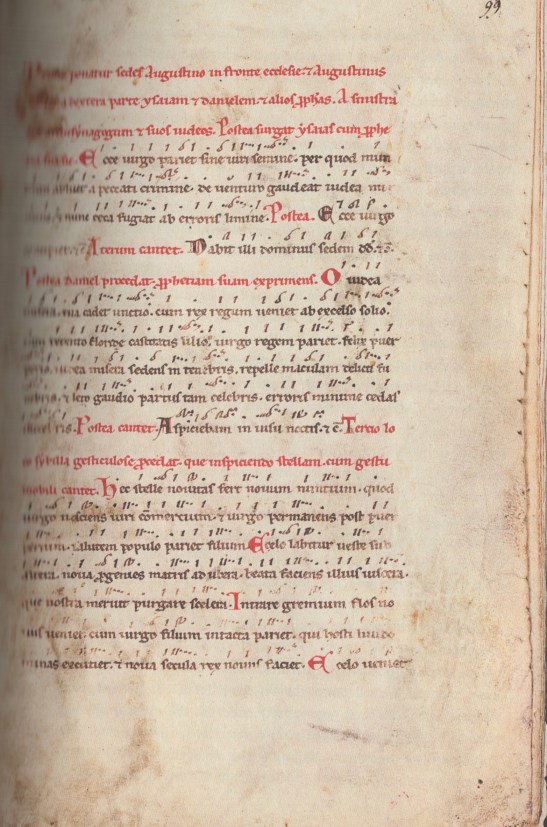 99
ponatur sedes Augustino in fronte ecclesie. ⁊ Augustinus
parte ysaiam ⁊ danielem. ⁊ alios ꝓphas. A sinistra
⁊ suos iudeos. Postea surgat ysaias cum ꝓphe
Ecce uirgo pariet sine uiri semine. per quod mun
a peccati crimine. de uenturo gaudeat iudea
⁊ nunc ceca fugiat ab erroris limine. Postea. Ecce uirgo
Iterum cantet. Dabit illi dominus sedem dd. ⁊c̄.
Postea daniel procedat. ꝓphetiam suam exprimens. O iudea
misera. tua cadet unctio. cum rex regum ueniet ab excelso solio.
cum retento floride castitatis lilio. uirgo regem pariet. felix puer
perio. iudea misera sedens in tenebris. repelle maculam delicti fu
nebris. ⁊ leto gaudio partus tam celebris. erroris minime cedas
Postea cantet. Aspiciebam in uisu noctis. ⁊c̄. Tercio lo
co sybilla gesticulose ꝓcedat. que inspiciendo stellam. cum gestu
mobili cantet. Hec stelle nouitas fert nouum nuntium. quod
uirgo nesciens uiri cōmercium. ⁊ uirgo permanens post puer
perium. salutem populo pariet filium. E celo labitur ueste sub
altera. noua ꝓgenies matris ad ubera. beata faciens illius uiscera.
que nostra meruit purgare scelera. Intrare gremium flos no
uus ueniet. cum uirgo filium intacta pariet. qui hosti liuido
minas excutiet. ⁊ noua secula rex nouus faciet. E celo ueniet